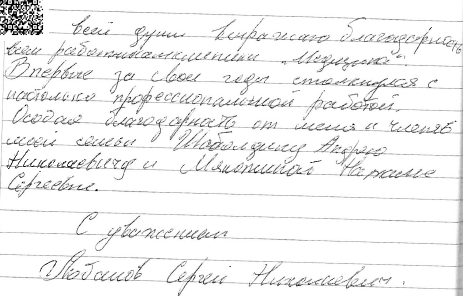 всей души выражаю благодарность
всем работникам клиники „Медицина".
Впервые за свои годы столкнулся с
настолько профессиональной работой.
Особая благодарность от меня и членов
моей семьи Шаболдину Андрею
Николаевичу и Мякотиной Наталье
Сергеевне.
С уважением
Лобанов Сергей Николаевич.